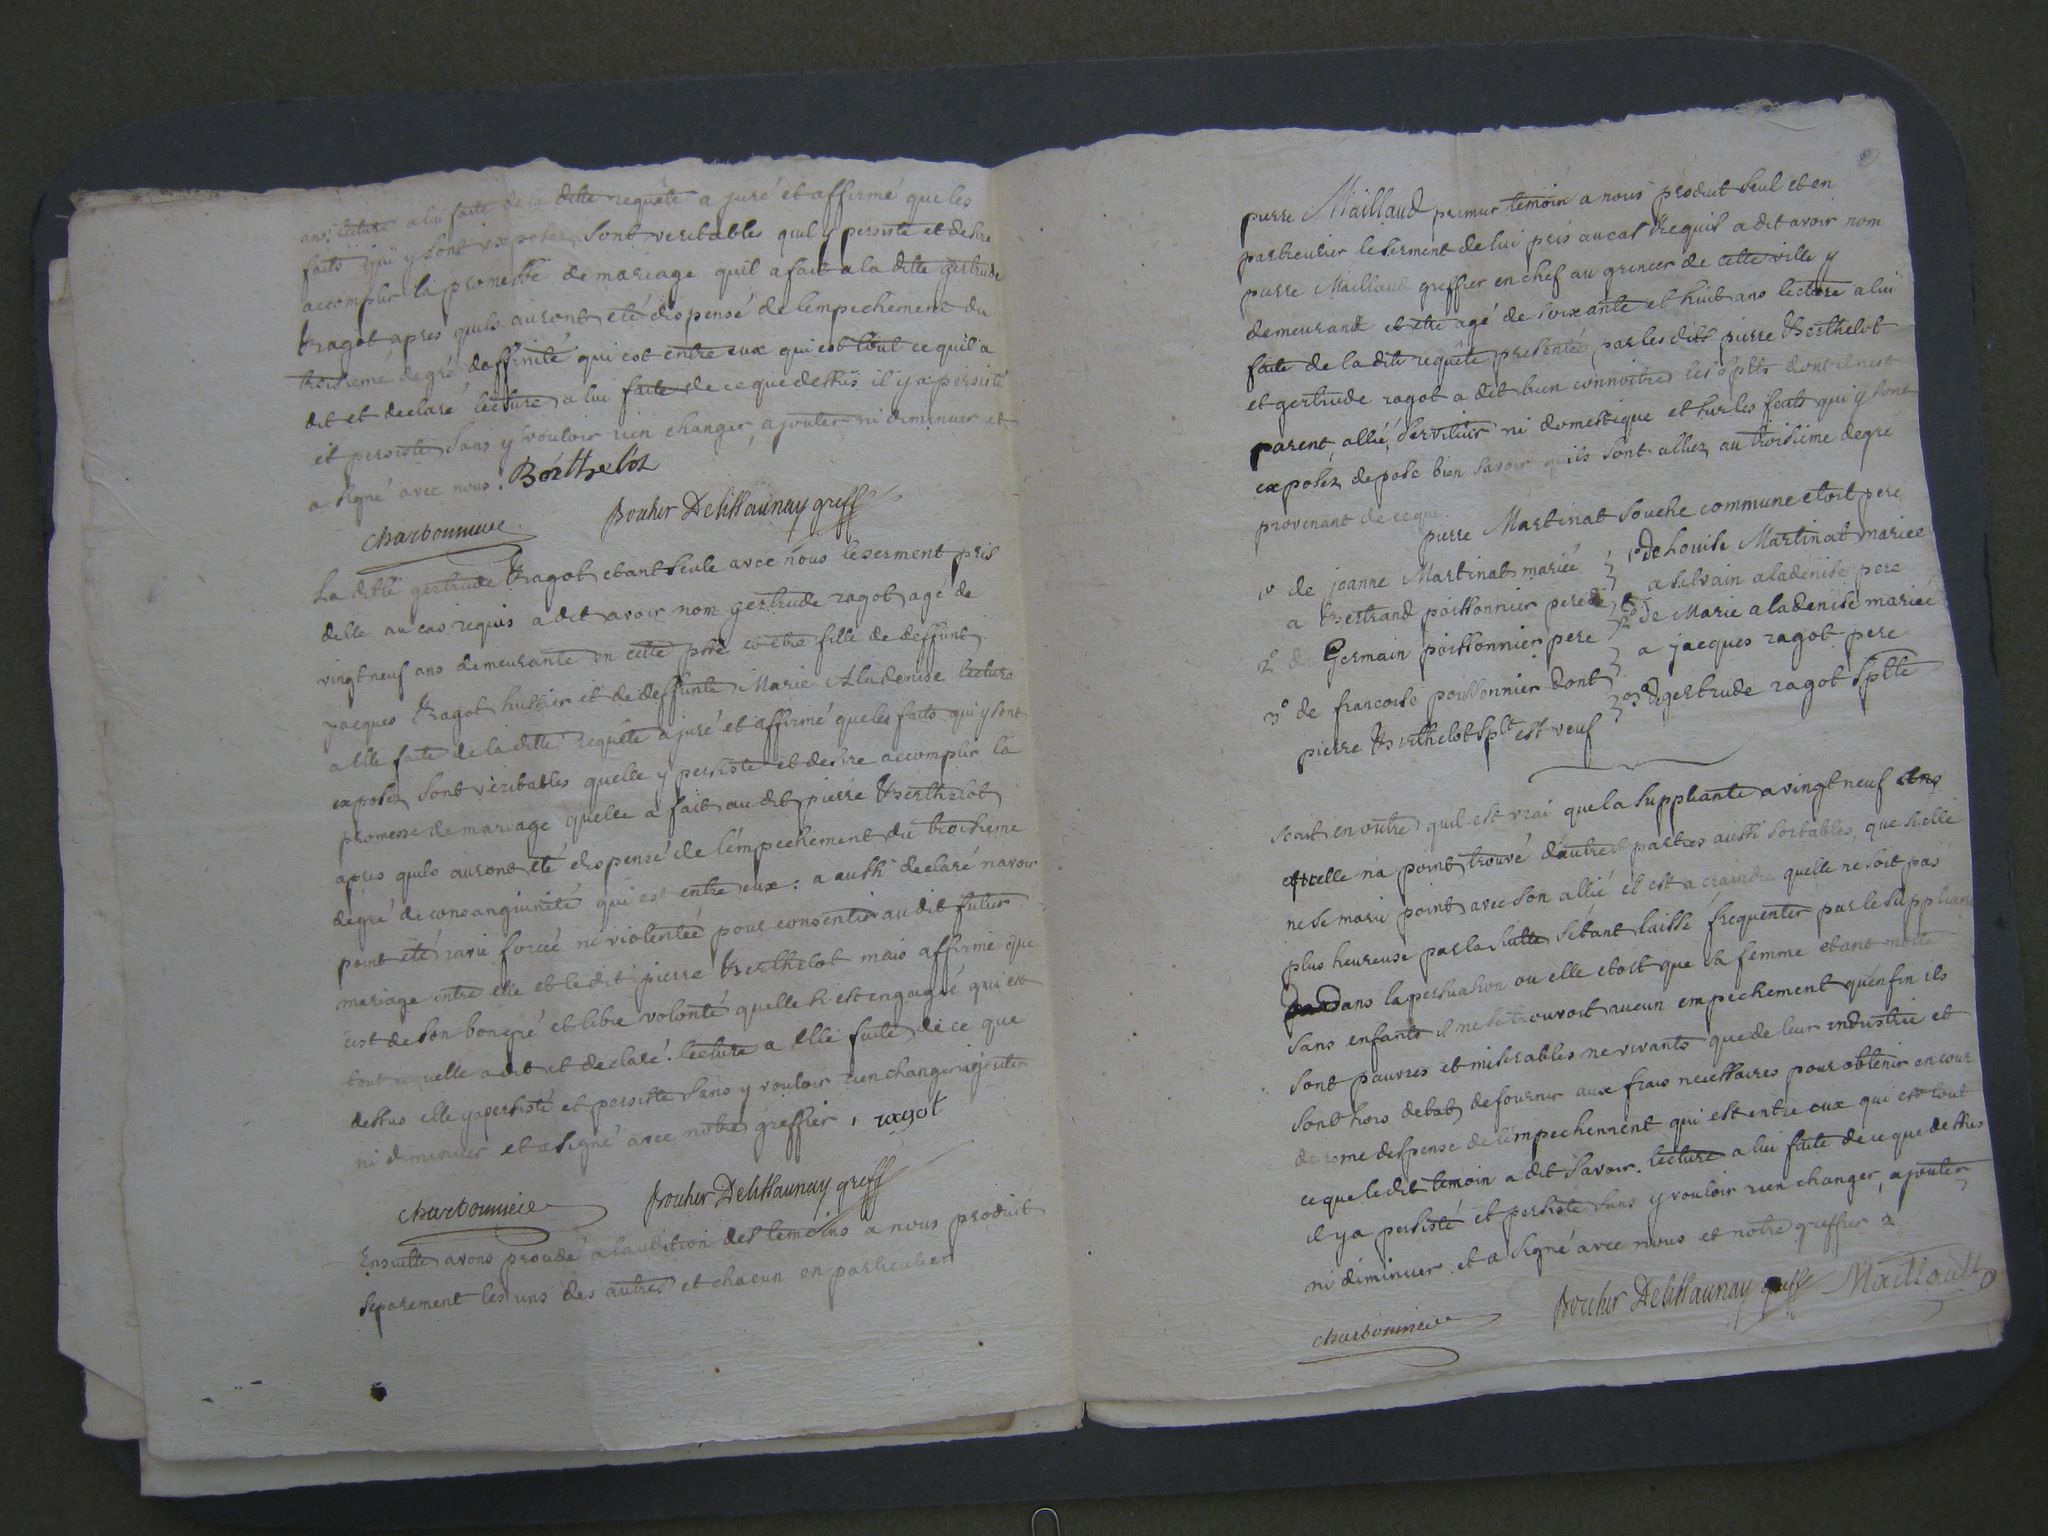 ans: lecture a lui faite de la ditte requête a juré et affirmé que les
faits qui y sont exposez sont veritables quil y persiste et desire
accomplir la promesse de mariage quil a fait a la ditte gertrude
Ragot apres quils auront été dispensé de lempechement du
troisieme degré daffinité qui est entre eux qui est tout ce quil a
dit et declaré lecture a lui faite de ce que dessus il y a persisté
et persiste sans y vouloir rien changer, ajouter ni diminuer et
a signé avec nous. Berthelot
charbonniere Boucher Delissaunay greff
La ditte gertrude Ragot etant seule avec nous le serment pris
delle au cas requis a dit avoir nom gertrude ragot agé de
vingt neuf ans demeurante en cette psse et etre fille de deffunt
jacques Ragot huissier et de deffunte Marie Aladenise lecture
a elle faite de la ditte requête a juré et affirmé que les faits qui y sont
exposez sont veritables quelle y persiste et desire accomplir la
promesse de mariage quelle a fait au dit pierre Berthelot
apres quils auront été dispensé de lémpechement du troisieme
degré de consanguinité qui est entre eux: a aussi declaré navoir
point été ravie forcée ni violentée pour consentir au dit futur
mariage entre elle et le dit pierre Berthelot mais affirme que
cest de son bongré et libre volonté quelle si est engagée qui est
tout ce quelle a dit et declaré. lecture a elle faite de ce que
dessus elle y a persisté et persiste sans y vouloir rien changer ajouter
ni diminuer et a signé avec notre greffier, ragot
charbonniere Boucher Delissaunay greff
Ensuitte avons procédé a laudition des temoins a nous produit
separement les uns des autres et chacun en particulier
pierre Maillaud premier temoin a nous produit seul et en
particulier le serment de lui pris au cas requis a dit avoir nom
pierre Maillaud greffier en chef au grenier de cette ville y
demeurand et etre agé de soixante et huit ans lecture a lui
faite de la dite requête presentée par les dits pierre Berthelot
et gertrude ragot a dit bien connoitre les spts dont il nest
parent, allié, serviteur ni domestique et sur les faits qui y sont
exposez depose bien savoir quils sont alliez au troisieme degré
provenant de ce que
pierre Martinat souche commune etoit pere
1º de jeanne Martinat mariée
a Bertrand poissonnier pere de
2º de Germain poissonnier pere
3º de francoise poissonnier dont
pierre Berthelot spt est veuf
1º de Louise Martinat mariée
a silvain aladenise pere
2º de Marie aladenise mariée
a jacques ragot pere
3º de gertrude ragot spte
scait en outre quil est vrai que la suppliante a vingt neuf ans
et icelle na point trouvé dautres partres aussi sortables, que si elle
ne se marie point avec son allié il est a craindre quelle ne soit pas
plus heureuse par la suitte sétant laissé frequenter par le suppliant
dans la persuasion ou elle etoit que sa femme etant morte
sans enfants il ne se trouvoit aucun empechement quenfin ils
sont pauvres et miserables ne vivants que de leur industrie et
sont hors detat de fournir aux frais necessaires pour obtenir en cour
de rome dispense de lempechement qui est entre eux qui est tout
ce que le dit temoin a dit savoir. lecture a lui faite de ce que dessus
il y a persisté et persiste sans y vouloir rien changer, ajouter
ni diminuer et a signé avec nous et notre greffier
charbonniere Boucher Delissaunay greff Maillault